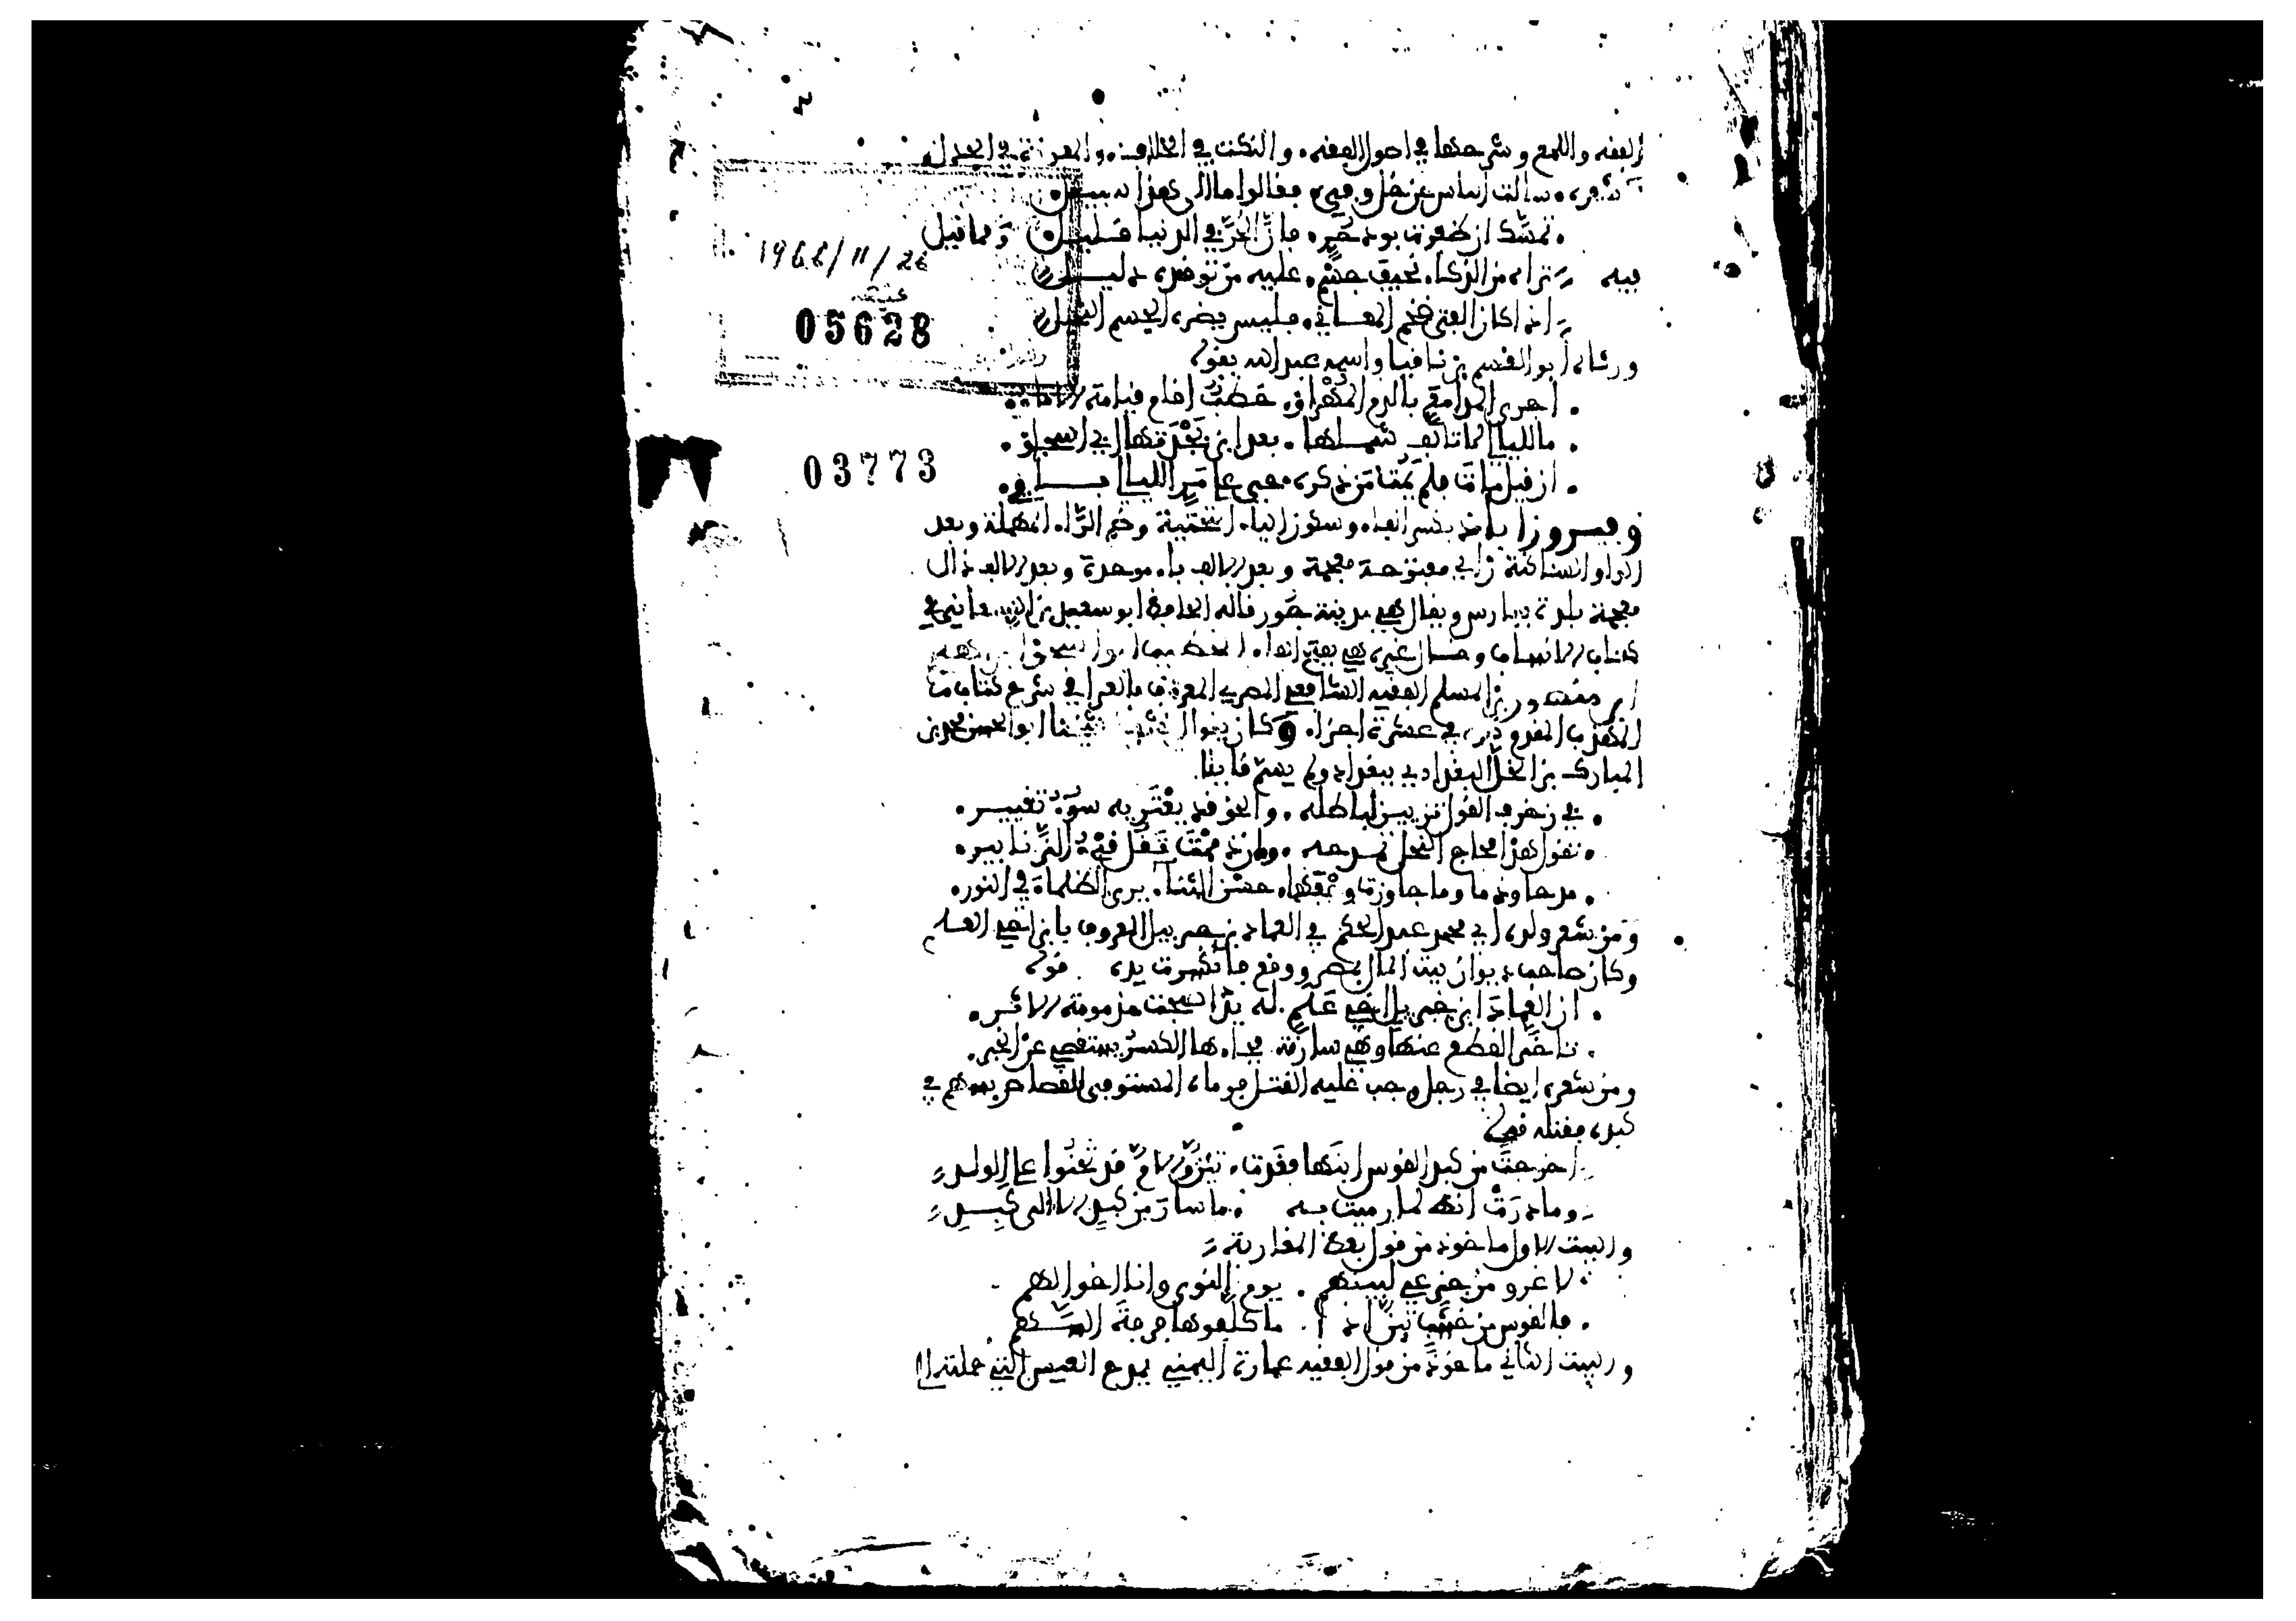 الفقه واللمع وشرحها في اصول الفقه والنكت في الخلاف والمعونة في الجدل
شعره سالت الناس عن خل وفي فقالوا ما الى هذا سبيل
تمسك ان ظفرت بود حر فان الحر في الدنيا قليل ومما قيل
فيه تراه من الذكاء نحيف جسم عليه من توقده دليل
اذا كان الفتى ضخم المعاني فليس يضره الجسم النحيل
ورثاه ابو القسم بن ناقيا واسمه عبد الله بقوله
اجرى المدامع بالدم المهراق خطب اقام قيامة الاماق
ما لليالي لا تالف شملها بعد ابن بجدتها ابي اسحاق
ان قيل مات فلم يمت من ذكره حي على مر الليالي باق
وفيروزاباذ بكسر الفاء وسكون الياء التحتية وضم الراء المهملة وبعد
الواو الساكنة زاي مفتوحة معجمة وبعد الالف باء موحدة وبعد الالف ذال
معجمة بلدة بفارس ويقال هي مدينة جور قاله الحافظ ابو سعد بن السمعاني في
كتاب الانساب وقال غيره هي بفتح الفاء الخطيب ابو اسحق ابراهيم
ابن منصور بن المسلم الفقيه الشافعي المصري المعروف بالعراقي شرح كتاب
المهذب المقدم ذكره في عشرة اجزاء وكان يقول انشدنا شيخنا ابو الحسن محمد بن
المبارك بن الخل البغدادي ببغداد ولم يسم قايلا
في زخرف القول تزيين لباطله والحق قد يعتريه سوء تغيير
تقول هذا مجاج النحل تمدحه وان ذممت فقل قيء الزنابير
مدحا وذما وما جاوزت وصفها حسن الثناء يري الظلماء في النور
ومن شعر ولده ابي محمد عبد الحكم في العماد بن جبريل المعروف بابن اخي العلم
وكان صاحب ديوان بيت المال بمصر ووقع فانكسرت يده قوله
ان العماد ابن جبريل اخي علم له يد اصبحت مذمومة الاثر
تاخر القطع عنها وهي سارقة فجاءها الكسر يستقصي عن الخبر
ومن شعره ايضا في رجل وجب عليه القتل فرماه المستوفي للقصاص بسهم في
كبده فقتله قوله
اخرجت من كبد القوس ابنها فغدت تئن والام قد تحنوا على الولد
وما درت انه لما رميت به ما سار من كبد الا الى كبد
والبيت الاول ماخوذ من قول بعض المغاربة
لا غرو من جزعي لبينهم يوم النوى وانا اخو الهم
فالقوس من خشب تئن اذا ما كلفوها فرقة السهم
والبيت الثاني ماخوذ من قول الفقيه عمارة اليمني يمدح العيس التي حملته الى
1966/11/26
عتيقة
05628
03773